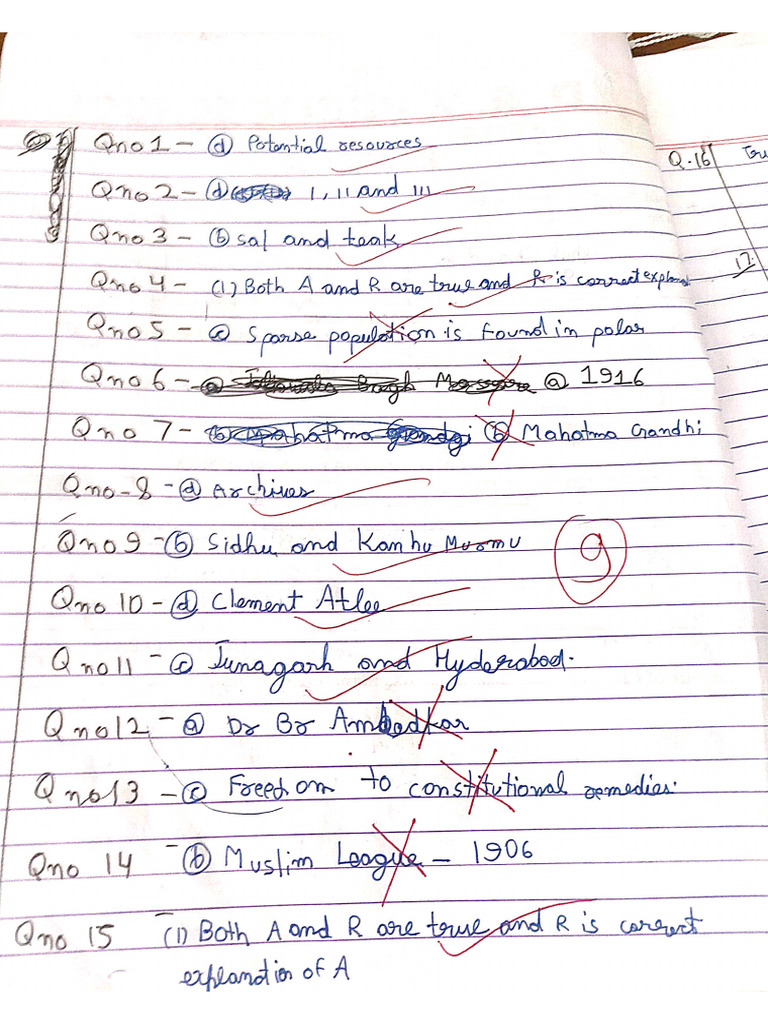 Qno 1 - (d) Potential resources
Q.16 Tru
Qno 2 - (d) I, II and III
Qno 3 - (b) sal and teak
Qno 4 - (1) Both A and R are true and R is correct explana
17.
Qno 5 - (c) Sparse population is found in polar
Qno 6 - (a) 1916
Qno 7 - (b) Mahatma Gandhi
Qno-8 - (d) Archives
Qno 9 - (b) Sidhu and Kanhu Murmu
9
Qno 10 - (d) Clement Atlee
Qno 11 - (c) Junagarh and Hyderabad.
Qno 12 - (a) Dr Br Ambedkar
Qno 13 - (c) Freedom to constitutional remedies.
Qno 14 - (b) Muslim League - 1906
Qno 15 (1) Both A and R are true and R is correct
explanation of A